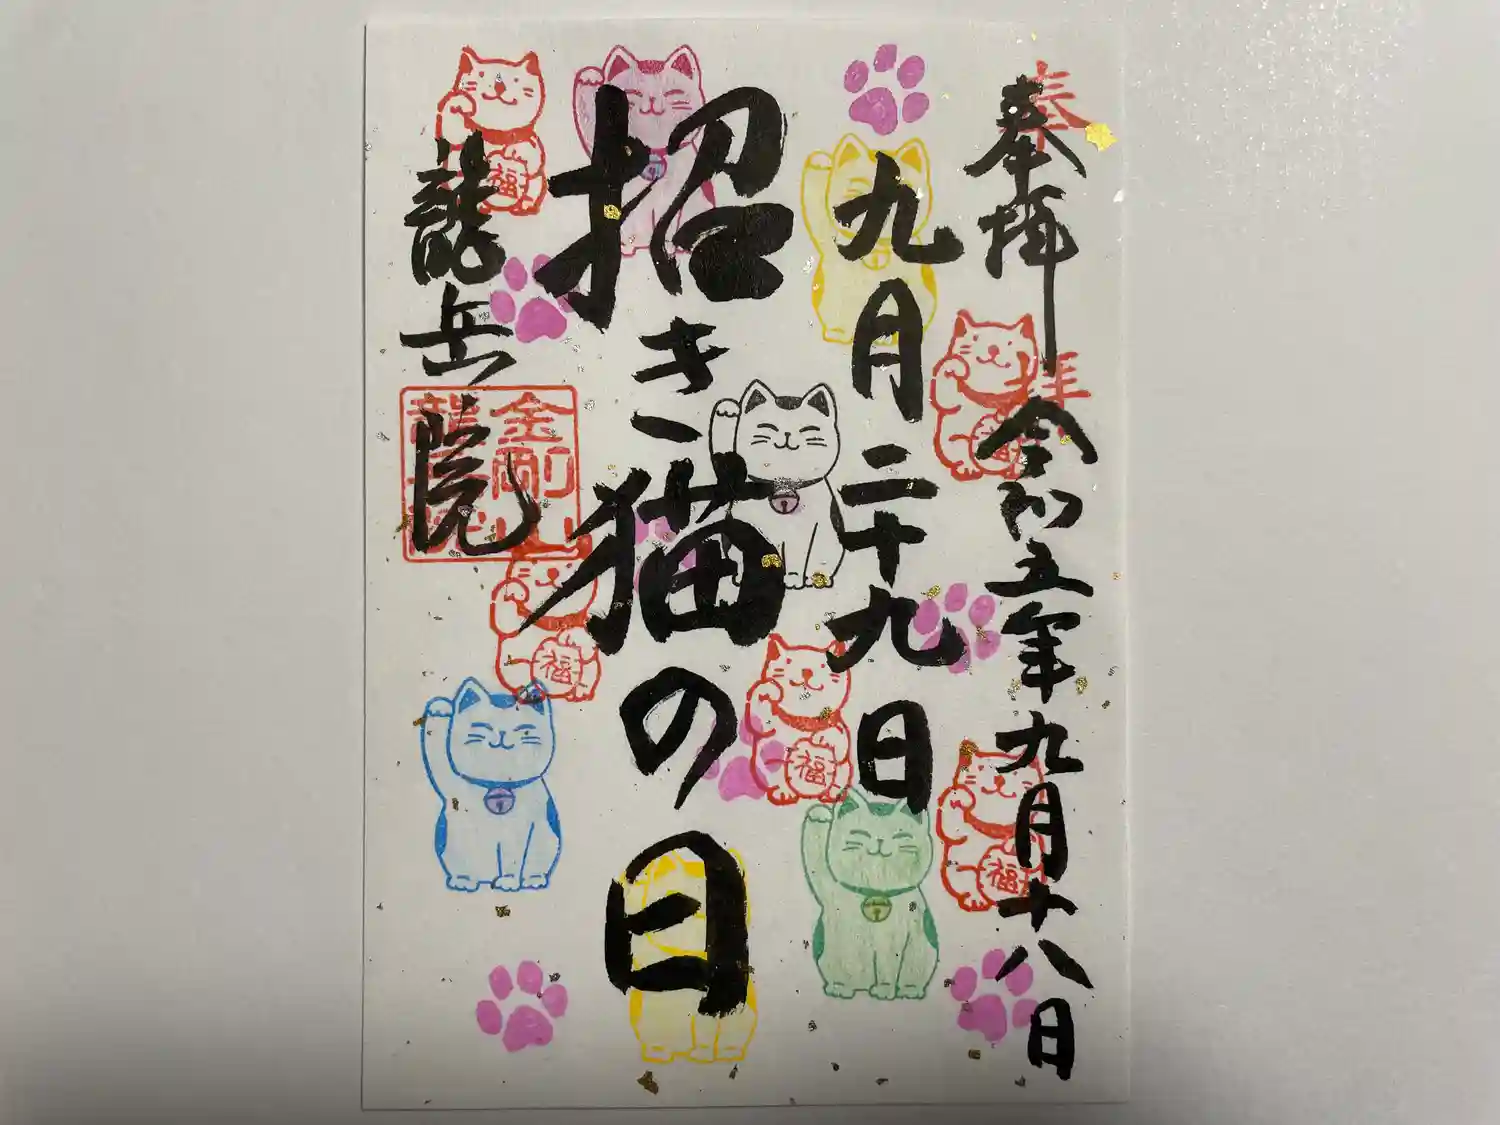 奉拝 令和五年九月十八日
九月二十九日
招き猫の日
龍岳院
奉拝
金剛山
龍岳院
福
福
福
福
福